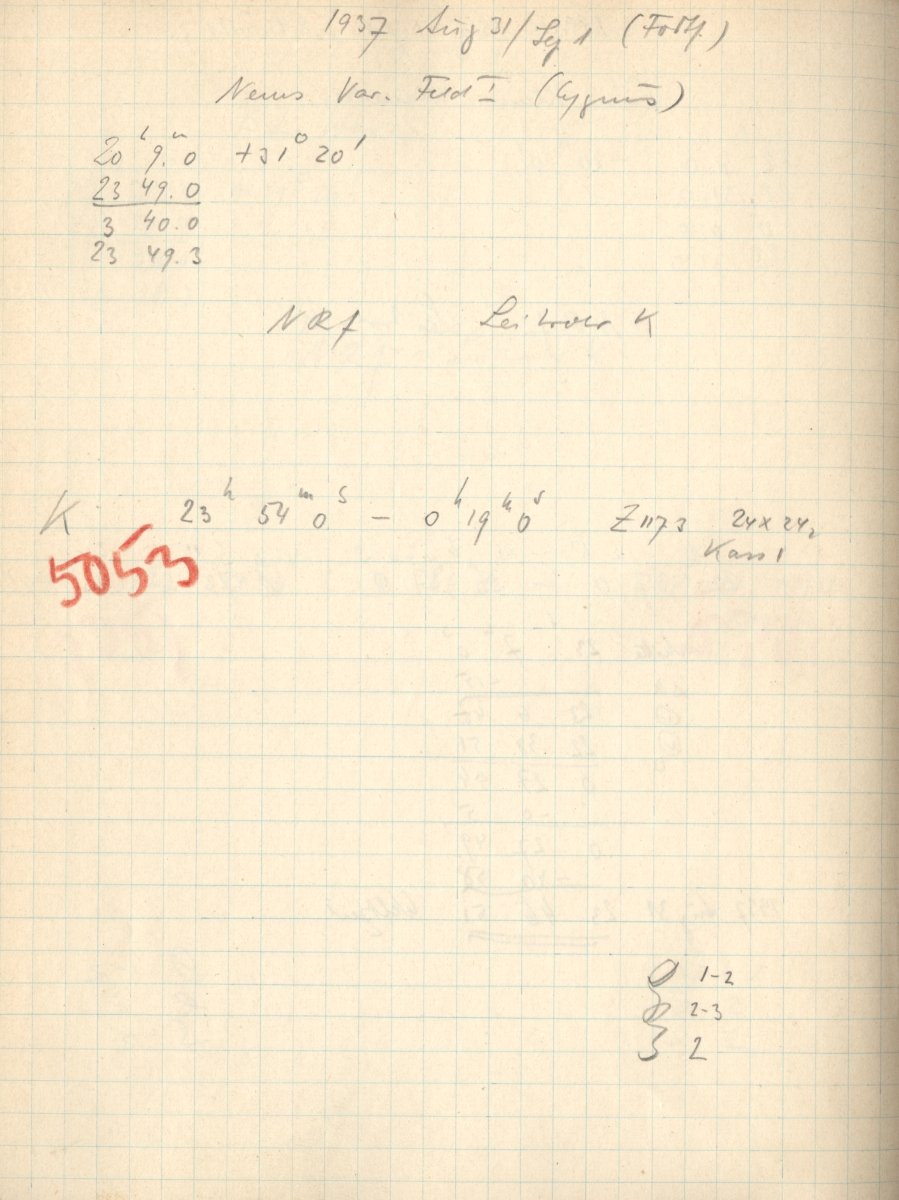 1937 Aug 31/Sep 1 (Forts.)
Neues Var. Feld I (Cygnus)
20ʰ 9.ᵐ0 +31° 20'
23 49.0
3 40.0
23 49.3
Leitrohr K
K 23ʰ 54ᵐ 0ˢ – 0ʰ 19ᵐ 0ˢ Z 1173 24×24
Kass 1
5053
1-2
2-3
3 2